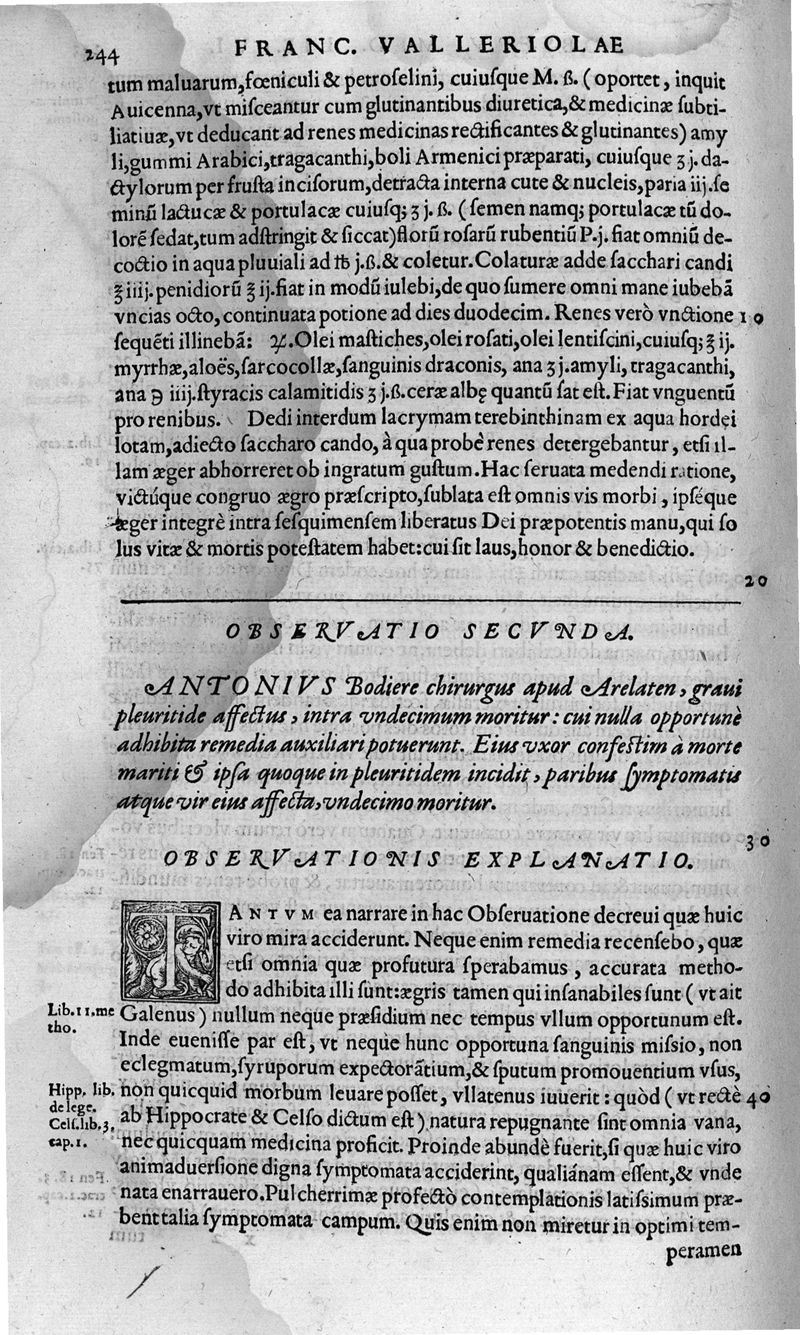 244 FRANC. VALLERIOLAE
tum maluarum,fœniculi & petroſelini, cuiuſque M. ß. ( oportet, inquit
Auicenna,vt miſceantur cum glutinantibus diuretica,& medicinæ ſubti-
liatiuæ,vt deducant ad renes medicinas rectificantes & glutinantes) amy
li,gummi Arabici,tragacanthi,boli Armenici præparati, cuiuſque ʒ j. da-
ctylorum per fruſta inciſorum,detracta interna cute & nucleis,paria iij.ſe
minū lactucæ & portulacæ cuiuſq; ʒ j. ß. ( ſemen namq; portulacæ tū do-
lorē ſedat,tum adſtringit & ſiccat)florū roſarū rubentiū P.j. fiat omniū de-
coctio in aqua pluuiali ad ℔ j.ß.& coletur.Colaturæ adde ſacchari candi
℥ iiij. penidiorū ℥ ij.fiat in modū iulebi,de quo ſumere omni mane iubebā
vncias octo, continuata potione ad dies duodecim. Renes verò vnctione 10
ſequēti illinebā: ℞.Olei maſtiches,olei roſati,olei lentiſcini,cuiuſq; ℥ ij.
myrrhæ,aloës,ſarcocollæ,ſanguinis draconis, ana ʒ j.amyli, tragacanthi,
ana ℈ iiij.ſtyracis calamitidis ʒ j.ß.ceræ albę quantū ſat eſt. Fiat vnguentū
pro renibus. Dedi interdum lacrymam terebinthinam ex aqua hordei
lotam,adiecto ſaccharo cando, à qua probè renes detergebantur, etſi il-
lam æger abhorreret ob ingratum guſtum. Hac ſeruata medendi ratione,
victúque congruo ægro præſcripto,ſublata eſt omnis vis morbi, ipſéque
æger integrè intra ſeſquimenſem liberatus Dei præpotentis manu,qui ſo
lus vitæ & mortis poteſtatem habet:cui ſit laus,honor & benedictio.
20
OBSERVATIO SECVNDA.
ANTONIVS Bodiere chirurgus apud Arelaten, graui
pleuritide affectus, intra vndecimum moritur: cui nulla opportunè
adhibita remedia auxiliari potuerunt. Eius vxor confeſtim à morte
mariti & ipſa quoque in pleuritidem incidit, paribus ſymptomatis
atque vir eius affecta,vndecimo moritur.
30
OBSERVATIONIS EXPLANATIO.
TANTVM ea narrare in hac Obſeruatione decreui quæ huic
viro mira acciderunt. Neque enim remedia recenſebo, quæ
etſi omnia quæ profutura ſperabamus, accurata metho-
do adhibita illi ſunt:ægris tamen qui inſanabiles ſunt ( vt ait
Lib.11.me Galenus) nullum neque præſidium nec tempus vllum opportunum eſt.
tho.
Inde eueniſſe par eſt, vt neque hunc opportuna ſanguinis miſsio, non
eclegmatum,ſyruporum expectorātium,& ſputum promouentium vſus,
Hipp. lib. non quicquid morbum leuare poſſet, vllatenus iuuerit: quòd ( vt rectè 40
de lege.
Celſ.lib.3. ab Hippocrate & Celſo dictum eſt) natura repugnante ſint omnia vana,
cap.1. nec quicquam medicina proficit. Proinde abundè fuerit,ſi quæ huic viro
animaduerſione digna ſymptomata acciderint, qualiánam eſſent,& vnde
nata enarrauero.Pulcherrimæ profectò contemplationis latiſsimum præ-
bent talia ſymptomata campum. Quis enim non miretur in optimi tem-
peramen